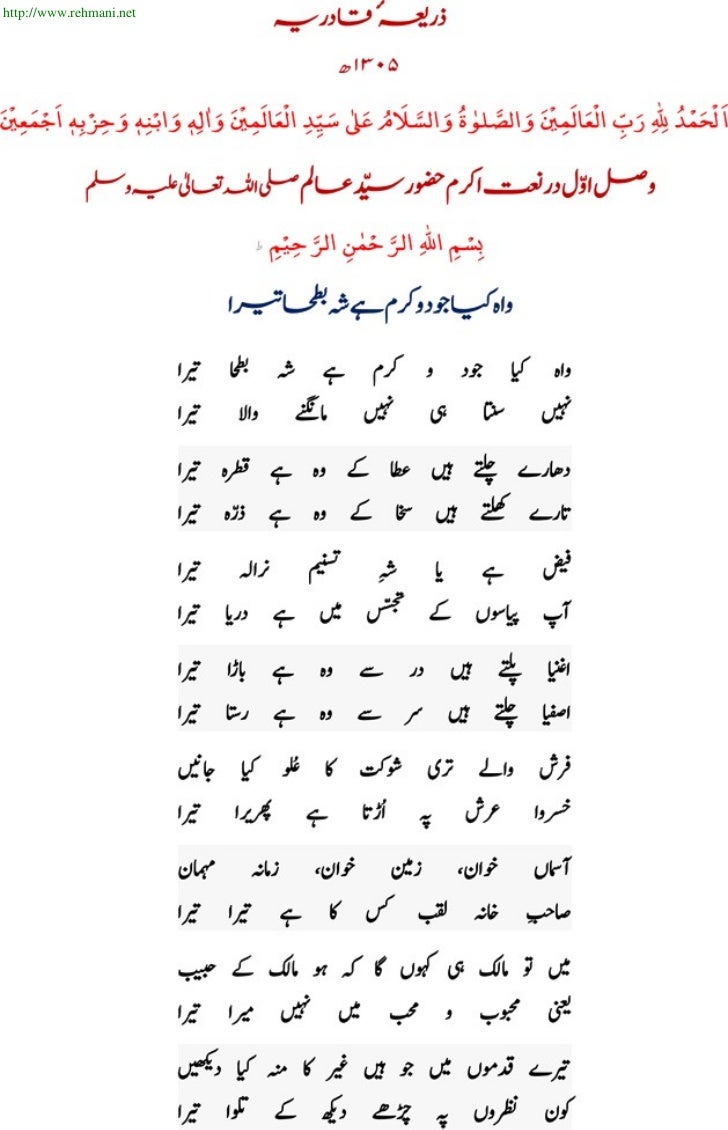 http://www.rehmani.net
ذریعۂ قادریہ
۱۳۰۵ھ
اَلْحَمْدُ لِلّٰہِ رَبِّ الْعَالَمِیْنَ وَالصَّلٰوۃُ وَالسَّلَامُ عَلٰی سَیِّدِ الْعَالَمِیْنَ وَاٰلِہٖ وَابْنِہٖ وَحِزْبِہٖ اَجْمَعِیْنَ
وصل اوّل در نعت اکرم حضور سیّد عالم صلی اللہ تعالیٰ علیہ وسلم
بِسْمِ اللّٰہِ الرَّحْمٰنِ الرَّحِیْمِ ط
واہ کیا جود و کرم ہے شہ بطحا تیرا
واہ کیا جود و کرم ہے شہ بطحا تیرا
نہیں سنتا ہی نہیں مانگنے والا تیرا
دھارے چلتے ہیں عطا کے وہ ہے قطرہ تیرا
تارے کھلتے ہیں سخا کے وہ ہے ذرّہ تیرا
فیض ہے یا شہِ تسنیم نرالہ تیرا
آپ پیاسوں کے تجسّس میں ہے دریا تیرا
اغنیا پلتے ہیں در سے وہ ہے باڑا تیرا
اصفیا چلتے ہیں سر سے وہ ہے رستا تیرا
فرش والے تری شوکت کا عُلو کیا جانیں
خسروا عرش پہ اُڑتا ہے پھریرا تیرا
آسماں خوان، زمین خوان، زمانہ مہمان
صاحبِ خانہ لقب کس کا ہے تیرا تیرا
میں تو مالک ہی کہوں گا کہ ہو مالک کے حبیب
یعنی محبوب و محب میں نہیں میرا تیرا
تیرے قدموں میں جو ہیں غیر کا منہ کیا دیکھیں
کون نظروں پہ چڑھے دیکھ کے تلوا تیرا